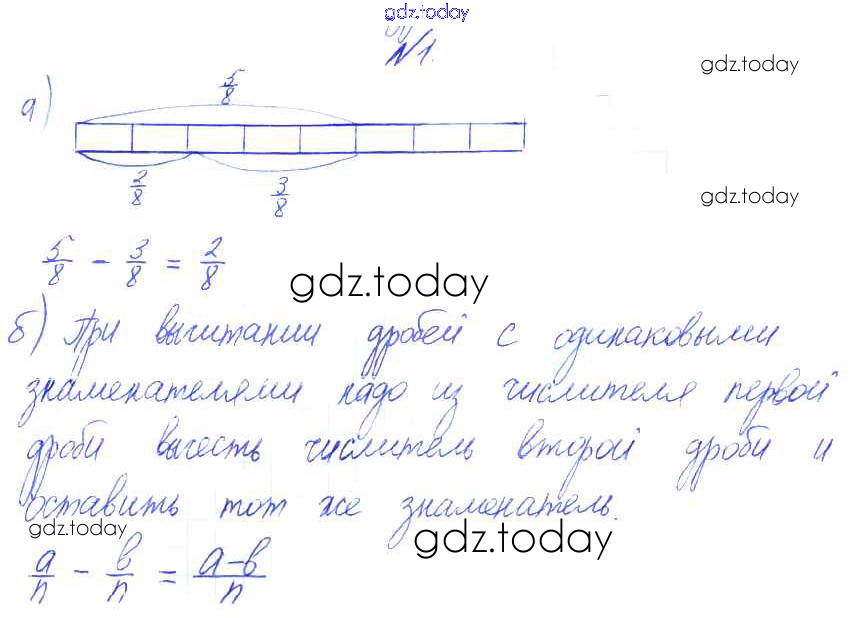 gdz.today
№1.
gdz.today
а)
5/8
2/8
3/8
gdz.today
5/8 - 3/8 = 2/8
gdz.today
б) При вычитании дробей с одинаковыми
знаменателями надо из числителя первой
дроби вычесть числитель второй дроби и
оставить тот же знаменатель.
gdz.today
gdz.today
a/n - b/n = a-b/n